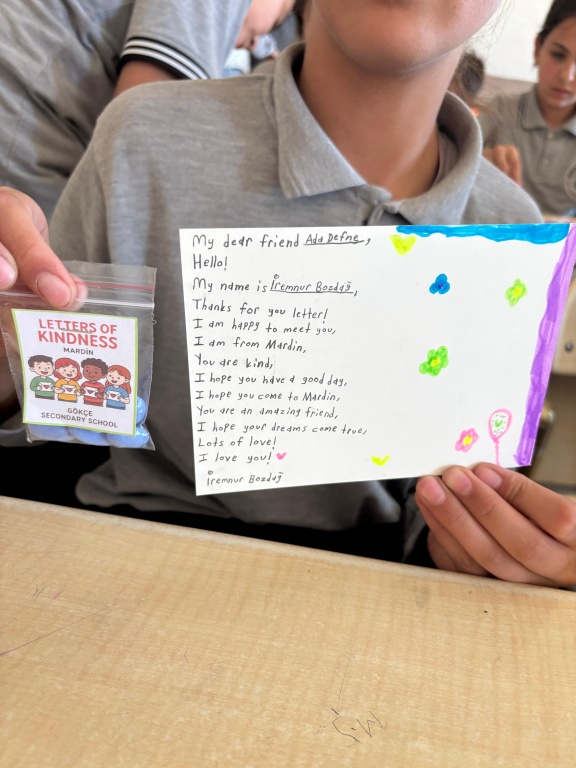 LETTERS OF
KINDNESS
MARDİN
GÖKÇE
SECONDARY SCHOOL
My dear friend Ada Defne,
Hello!
My name is İremnur Bozdağ,
Thanks for you letter!
I am happy to meet you,
I am from Mardin,
You are kind,
I hope you have a good day,
I hope you come to Mardin,
You are an amazing friend,
I hope your dreams come true,
Lots of love!
I love you!
İremnur Bozdağ